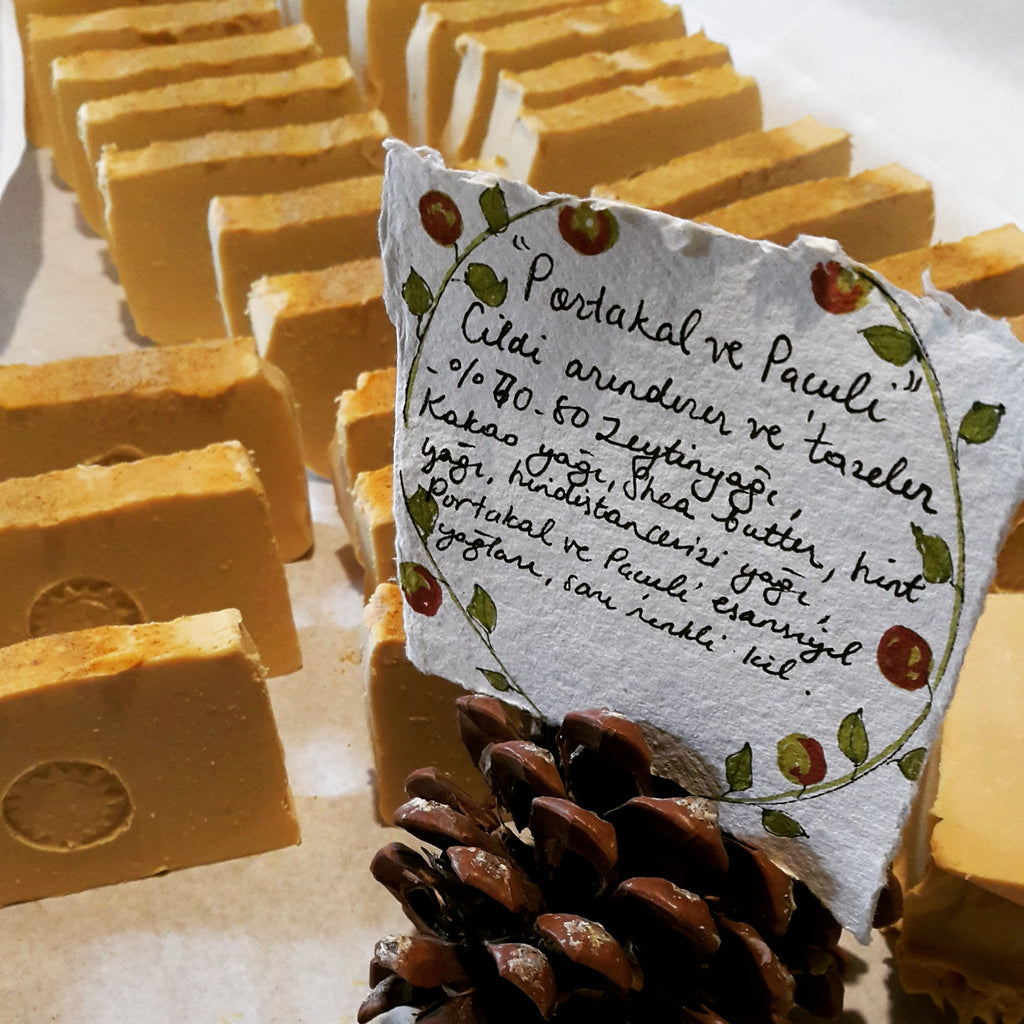 "Portakal ve Paçuli"
Cildi arındırır ve tazeler
- % 70-80 Zeytinyağı,
Kakao yağı, Shea butter, hint
yağı, hindistancevizi yağı,
Portakal ve Paçuli esansiyel
yağları, sarı renkli kil.